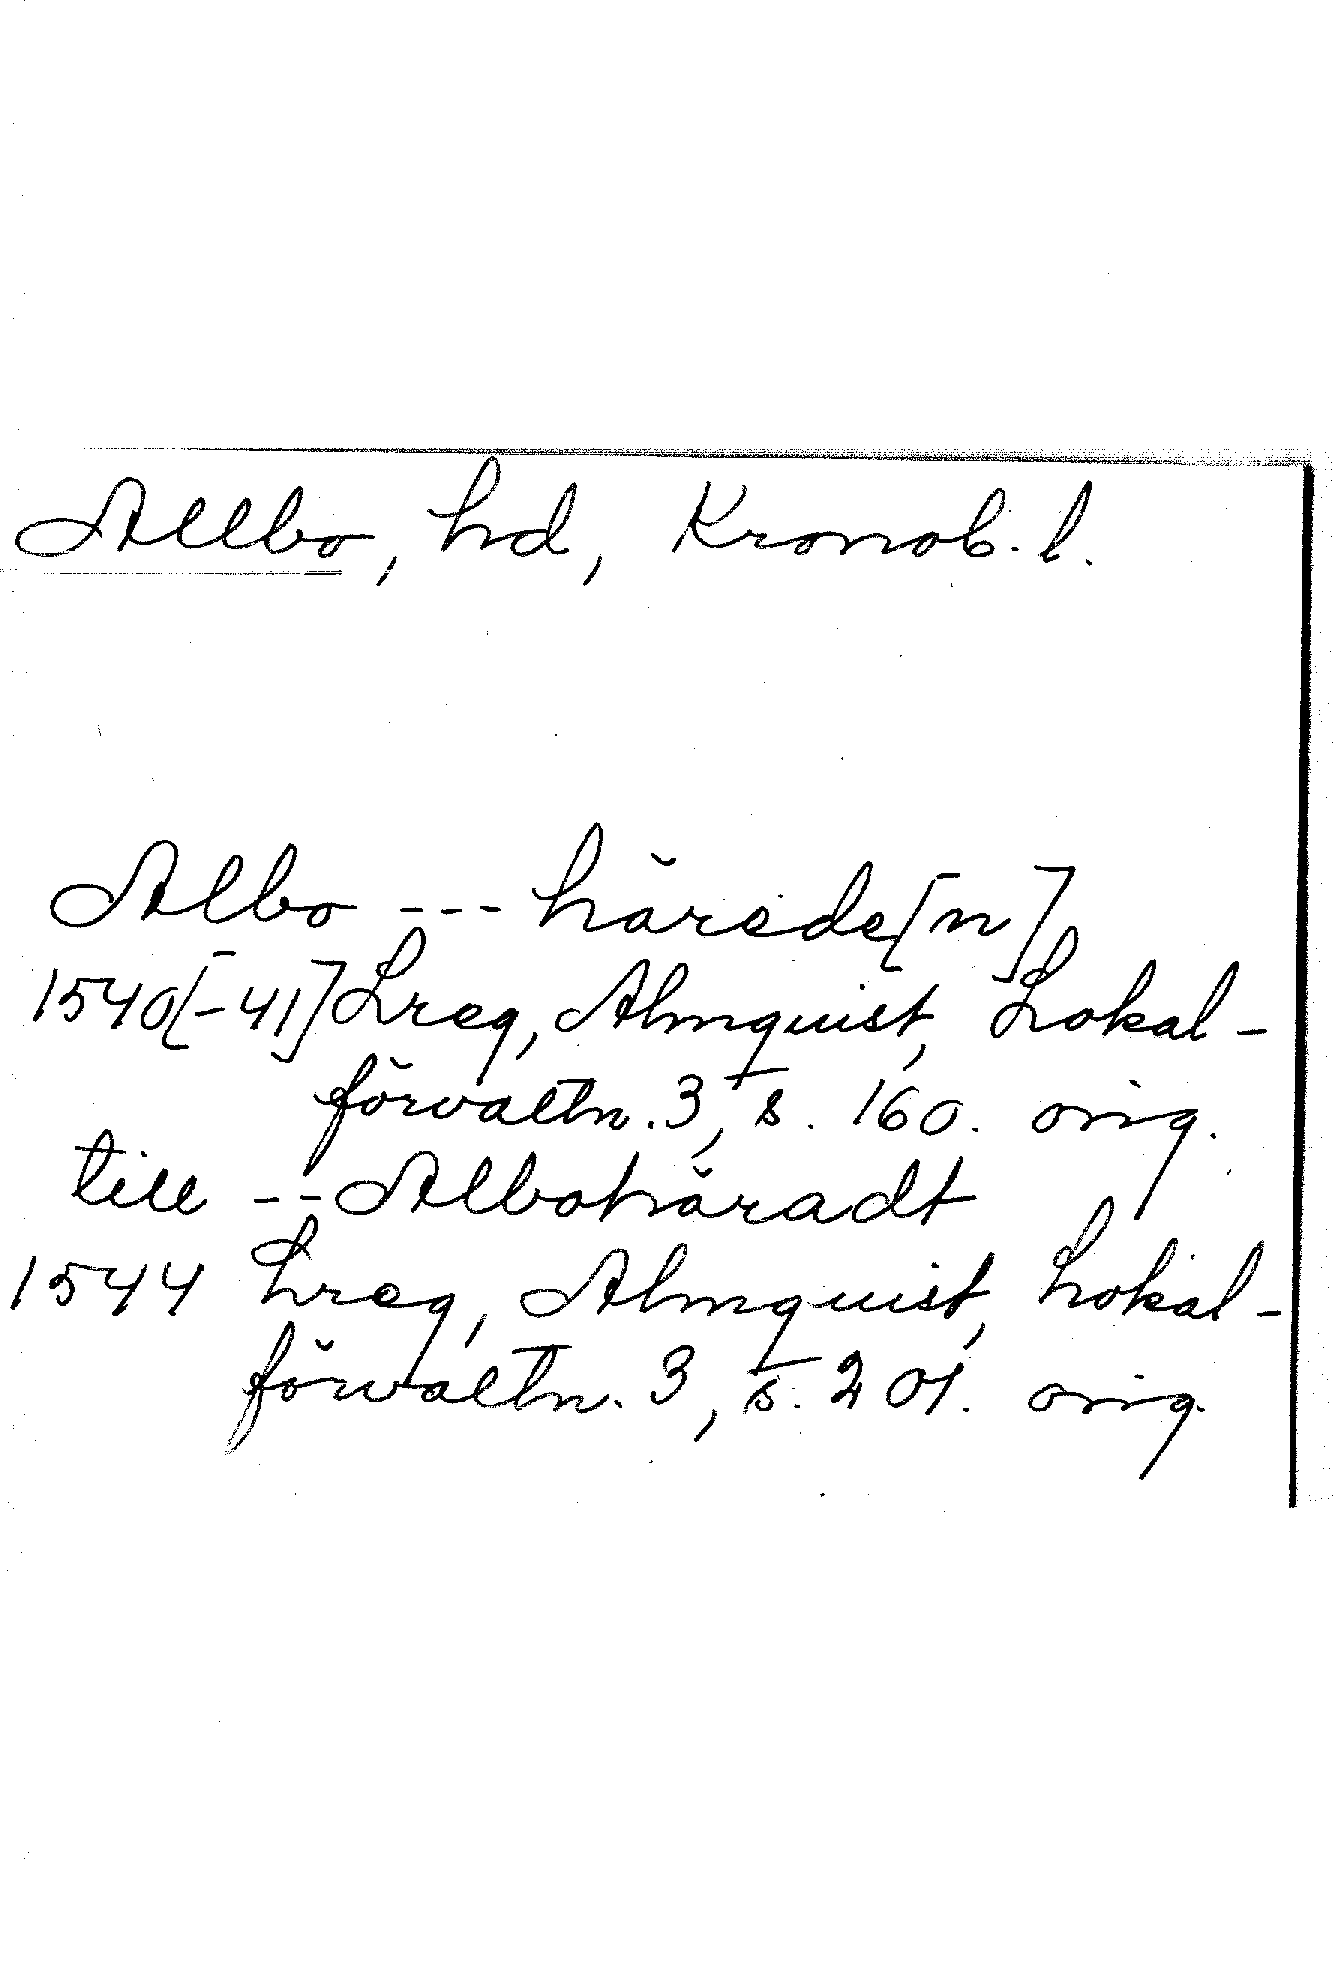 Allbo, hd, Kronob. l.
Albo --- härede[n]
1540[-41] Lreg, Almquist, Lokal-
förvaltn. 3, s. 160. orig.
till -- Albohäradt
1544 Lreg, Almquist, Lokal-
förvaltn. 3, s. 201. orig.